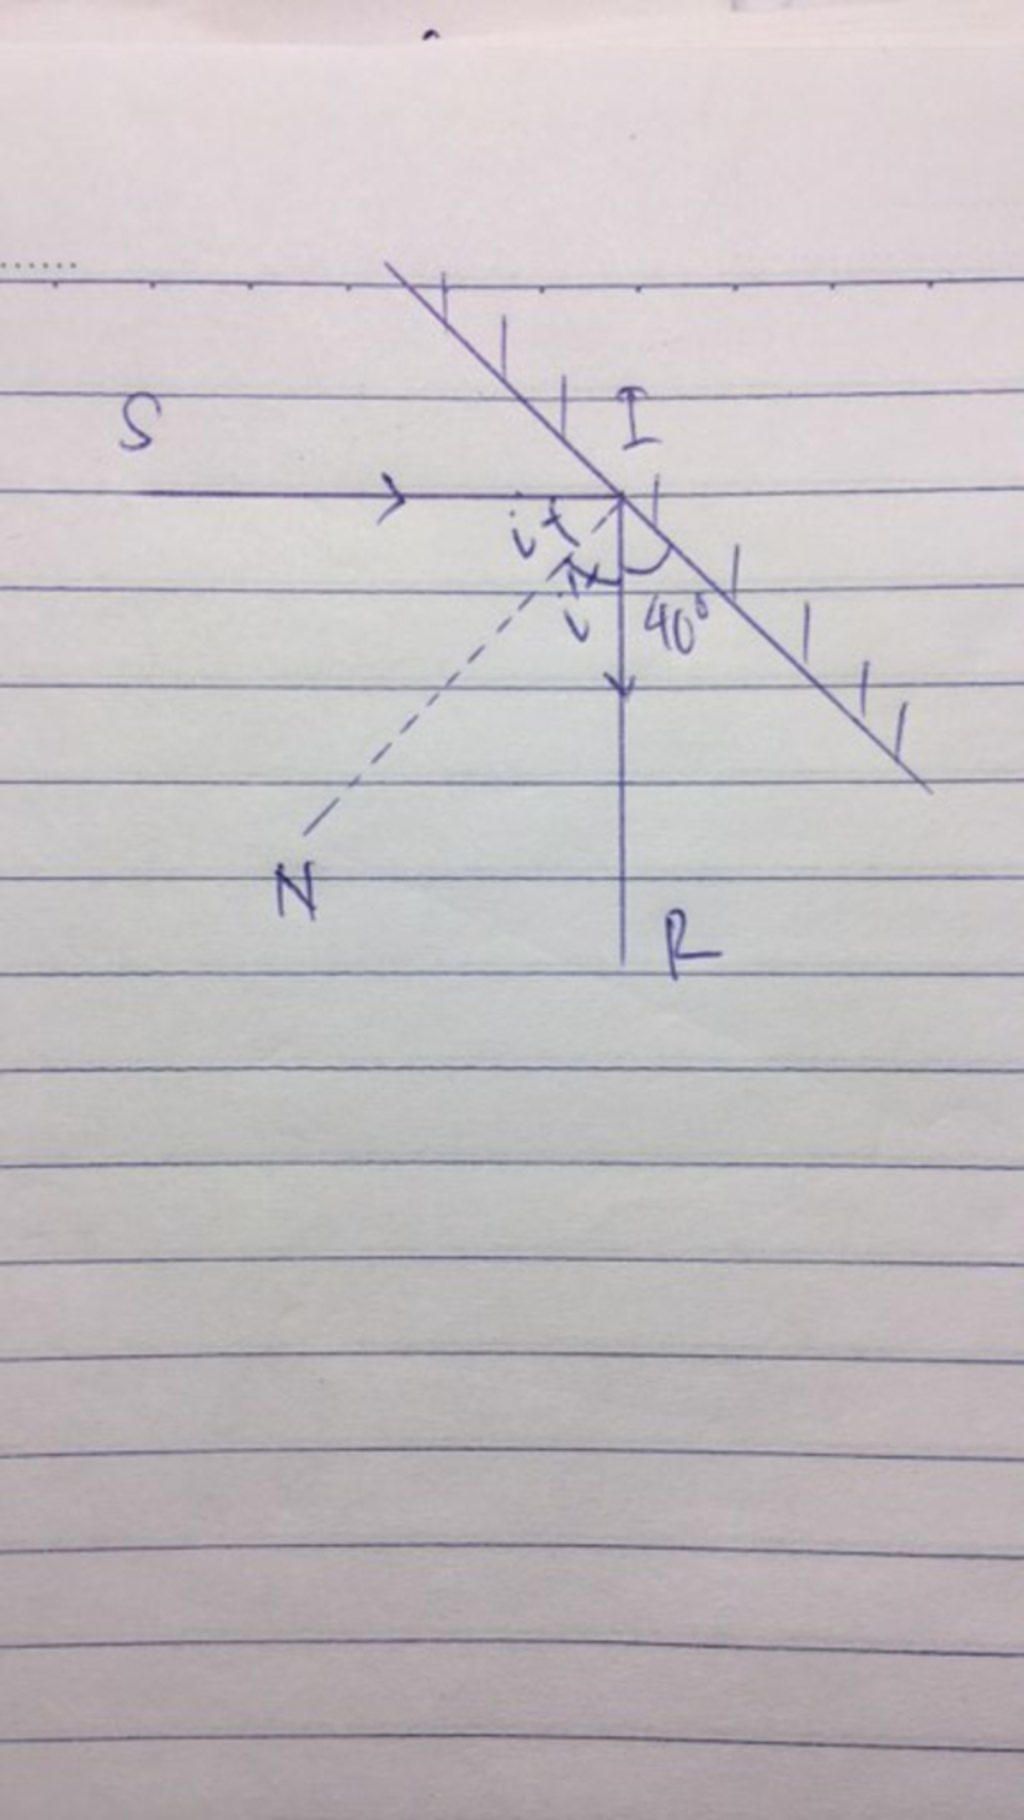 S
I
i
i'
40°
N
R